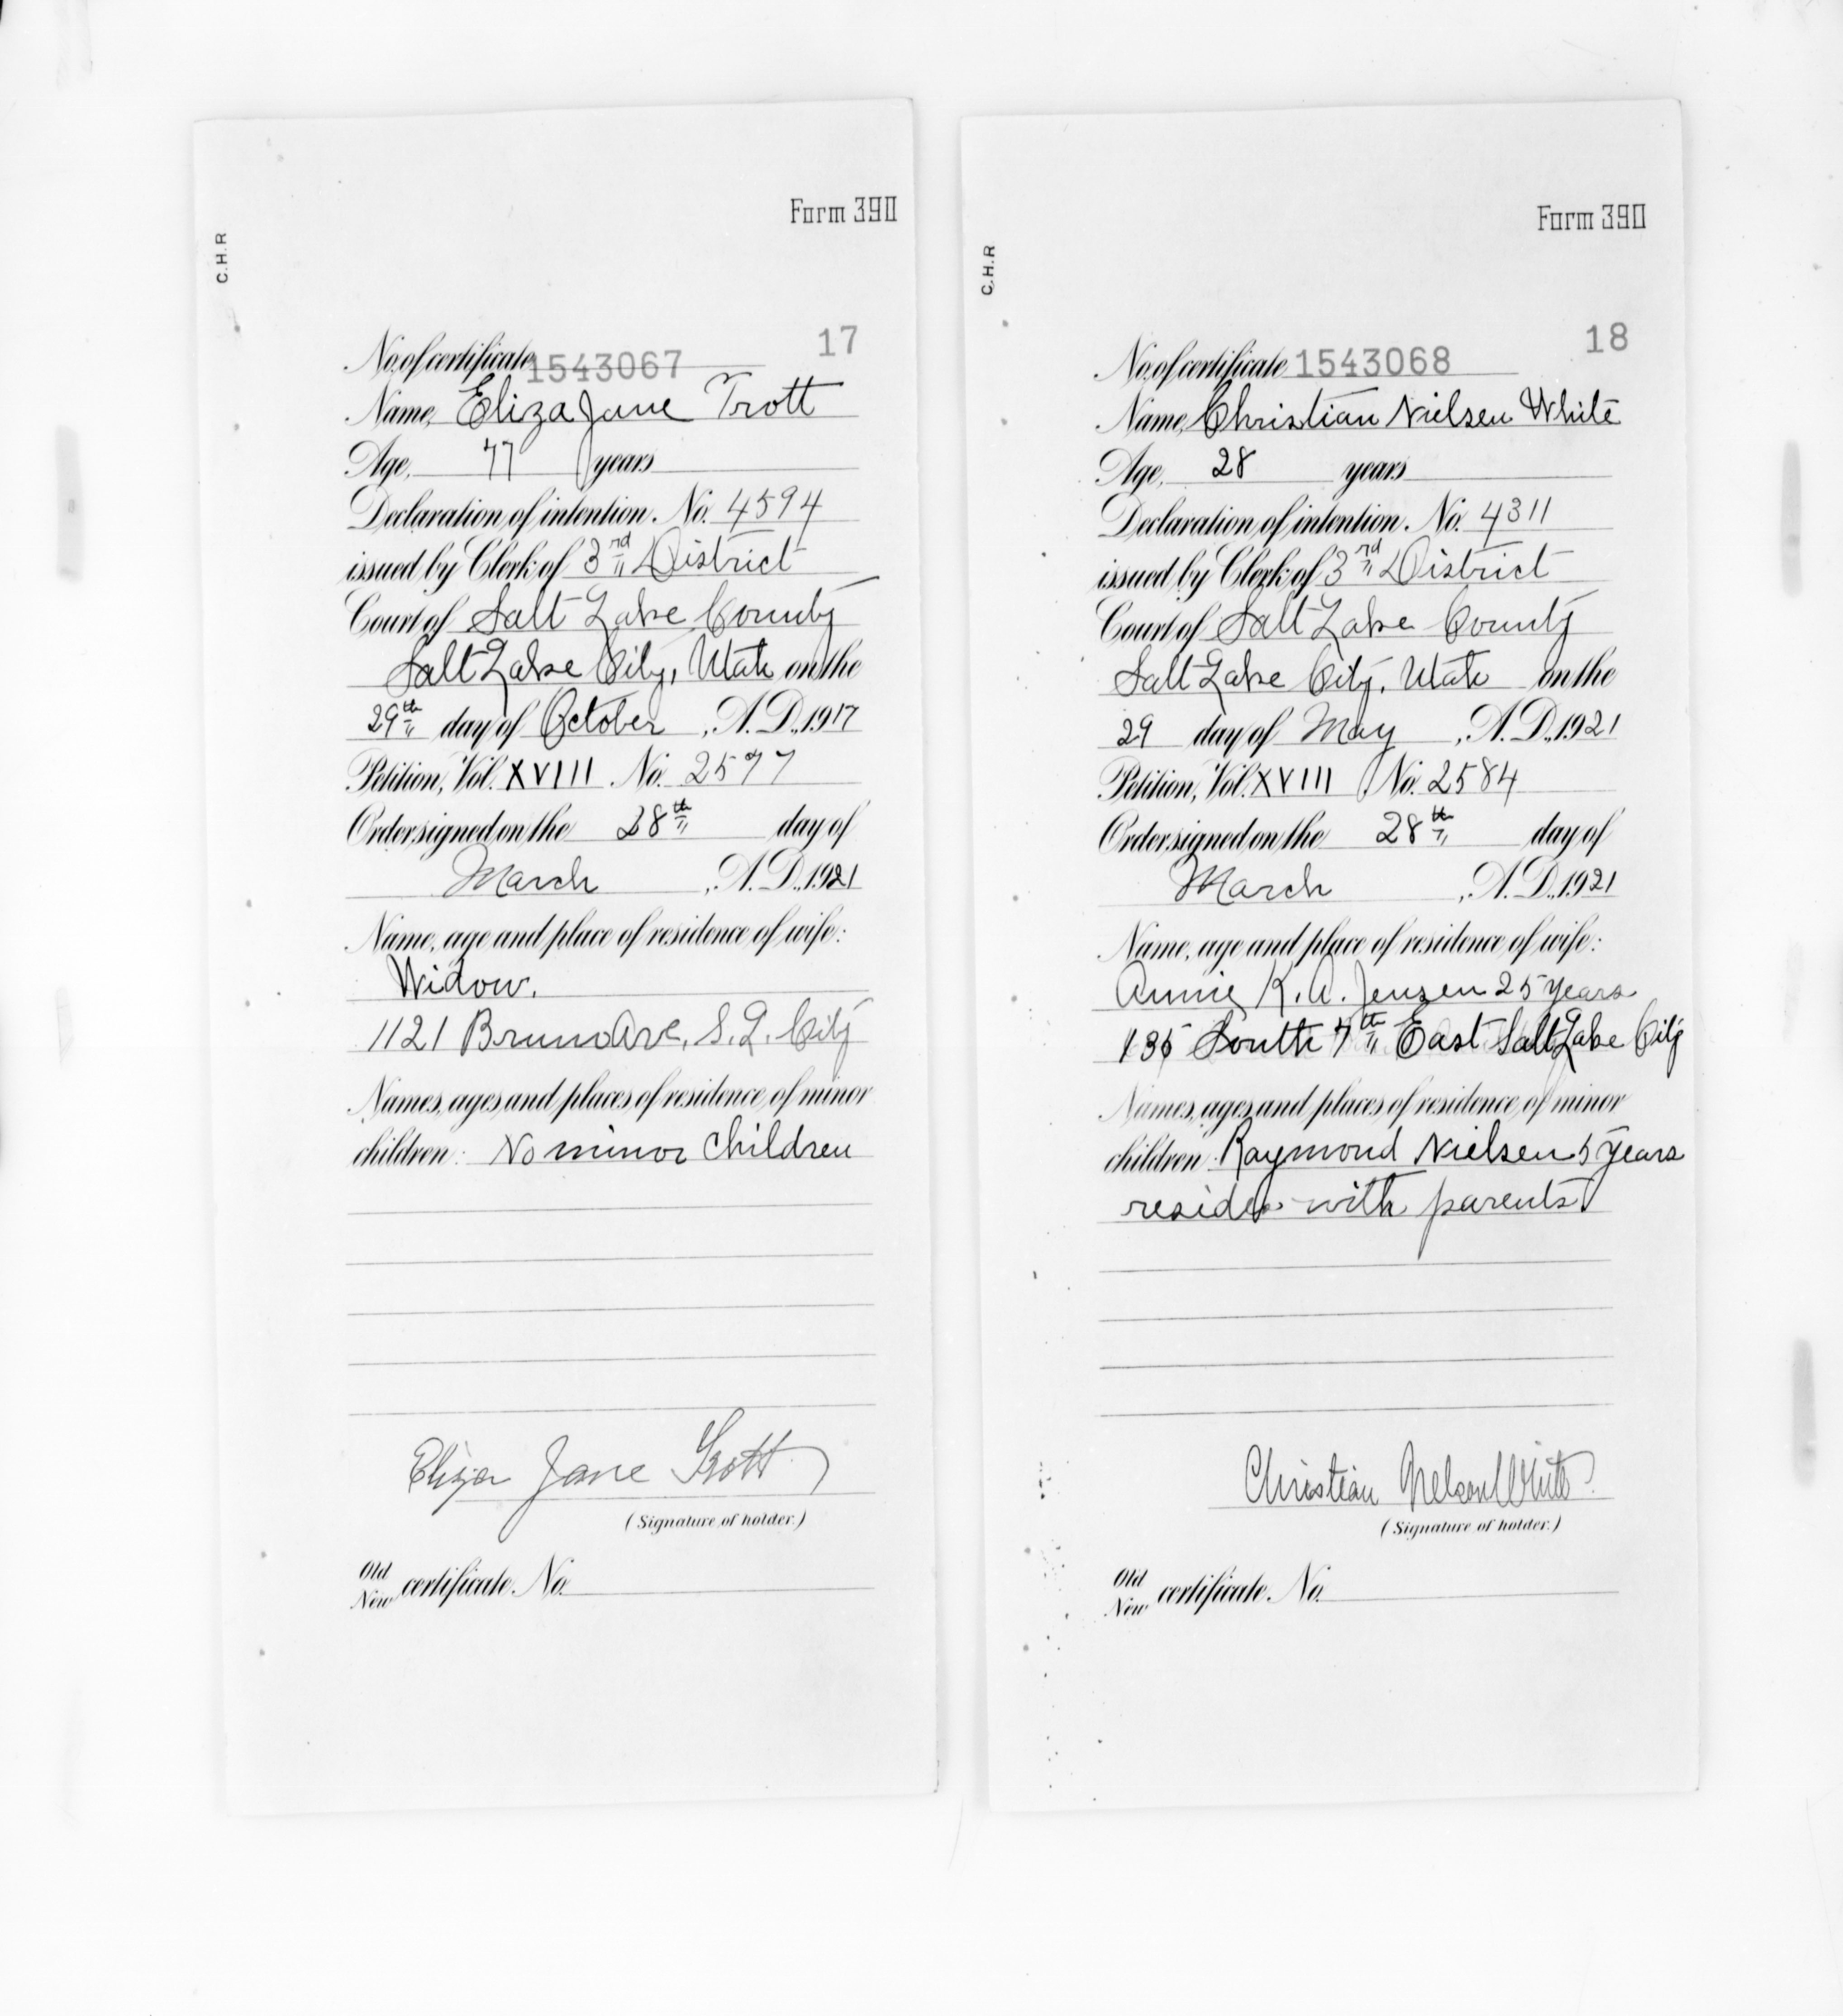 Form 390
C.H.R
17
No. of certificate 1543067
Name, Eliza Jane Trott
Age, 77 years
Declaration of intention. No. 4594
issued by Clerk of 3rd District
Court of Salt Lake County
Salt Lake City, Utah on the
29th day of October, A.D., 1917
Petition, Vol. XVIII No. 2577
Order signed on the 28th day of
March, A.D., 1921
Name, age and place of residence of wife:
Widow.
1121 Bruno Ave, S.L. City
Names, ages and places of residence of minor
children: No minor Children
Eliza Jane Trott
(Signature of holder.)
Old
New certificate. No.
Form 390
C.H.R
18
No. of certificate 1543068
Name, Christian Nielsen White
Age, 28 years
Declaration of intention. No. 4311
issued by Clerk of 3rd District
Court of Salt Lake County
Salt Lake City, Utah on the
29 day of May, A.D., 1921
Petition, Vol. XVIII No. 2584
Order signed on the 28th day of
March, A.D., 1921
Name, age and place of residence of wife:
Annie K. A. Jensen 25 years
135 South 7th East Salt Lake City
Names, ages and places of residence of minor
children: Raymond Nielsen 5 years
resides with parents
Christian Nelson White
(Signature of holder.)
Old
New certificate. No.